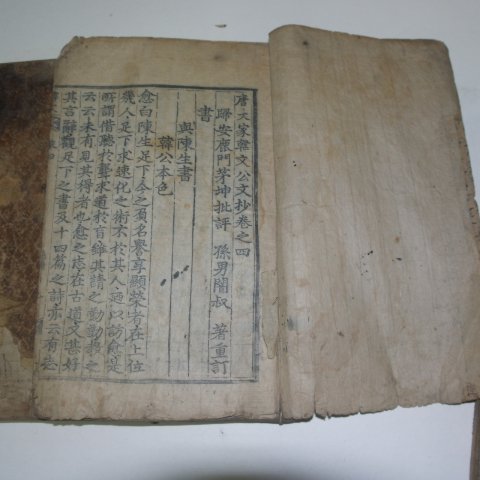 唐大家韓文公文抄卷之四
歸安鹿門茅坤批評 孫男闇叔 著重訂
書
與陳生書
韓公本色
愈白陳生足下今之負名譽享顯榮者在上位
幾人足下求速化之術不於其人迺以訪愈是
所謂借聽於聾求道於盲雖其請之勤勤教之
云云未有見其得者也愈之志在古道又甚好
其言辭觀足下之書及十四篇之詩亦云有志